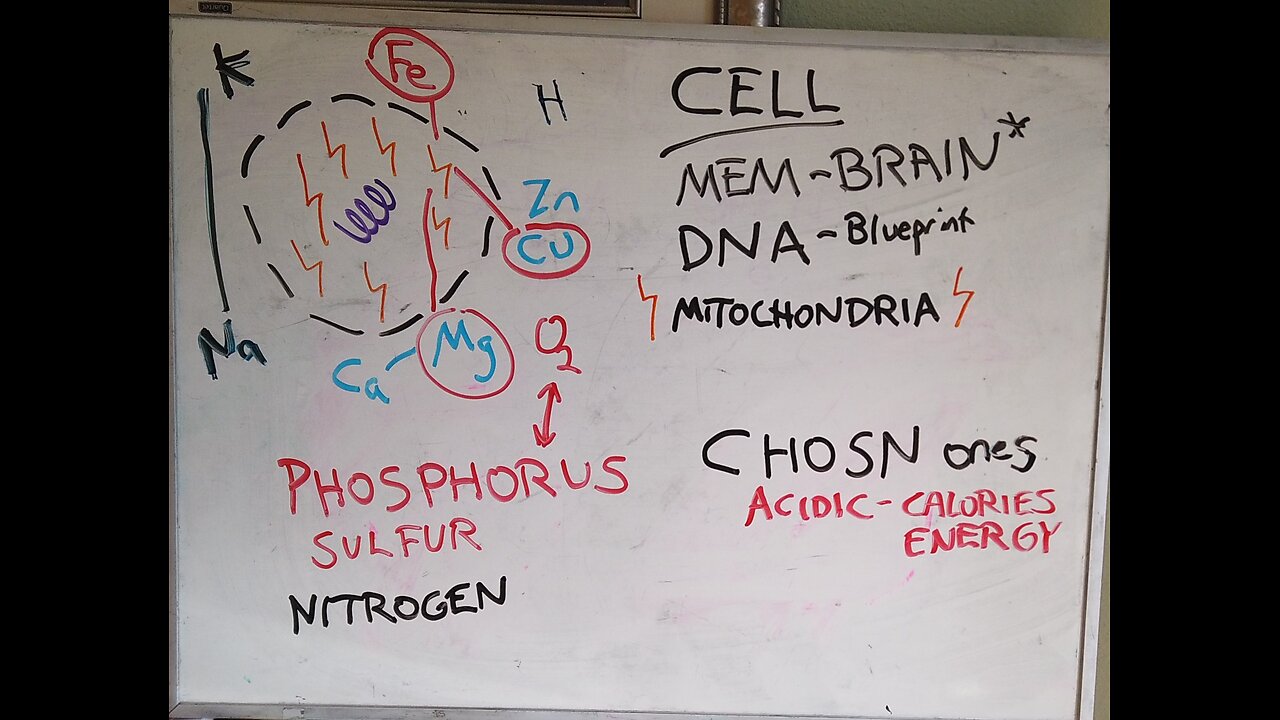 Quartet
K
Fe
H
Zn
Cu
Na
Ca
Mg
O2
PHOSPHORUS
SULFUR
NITROGEN
CELL
MEM-BRAIN*
DNA - Blueprint
MITOCHONDRIA
CHOSN ones
ACIDIC - CALORIES
ENERGY